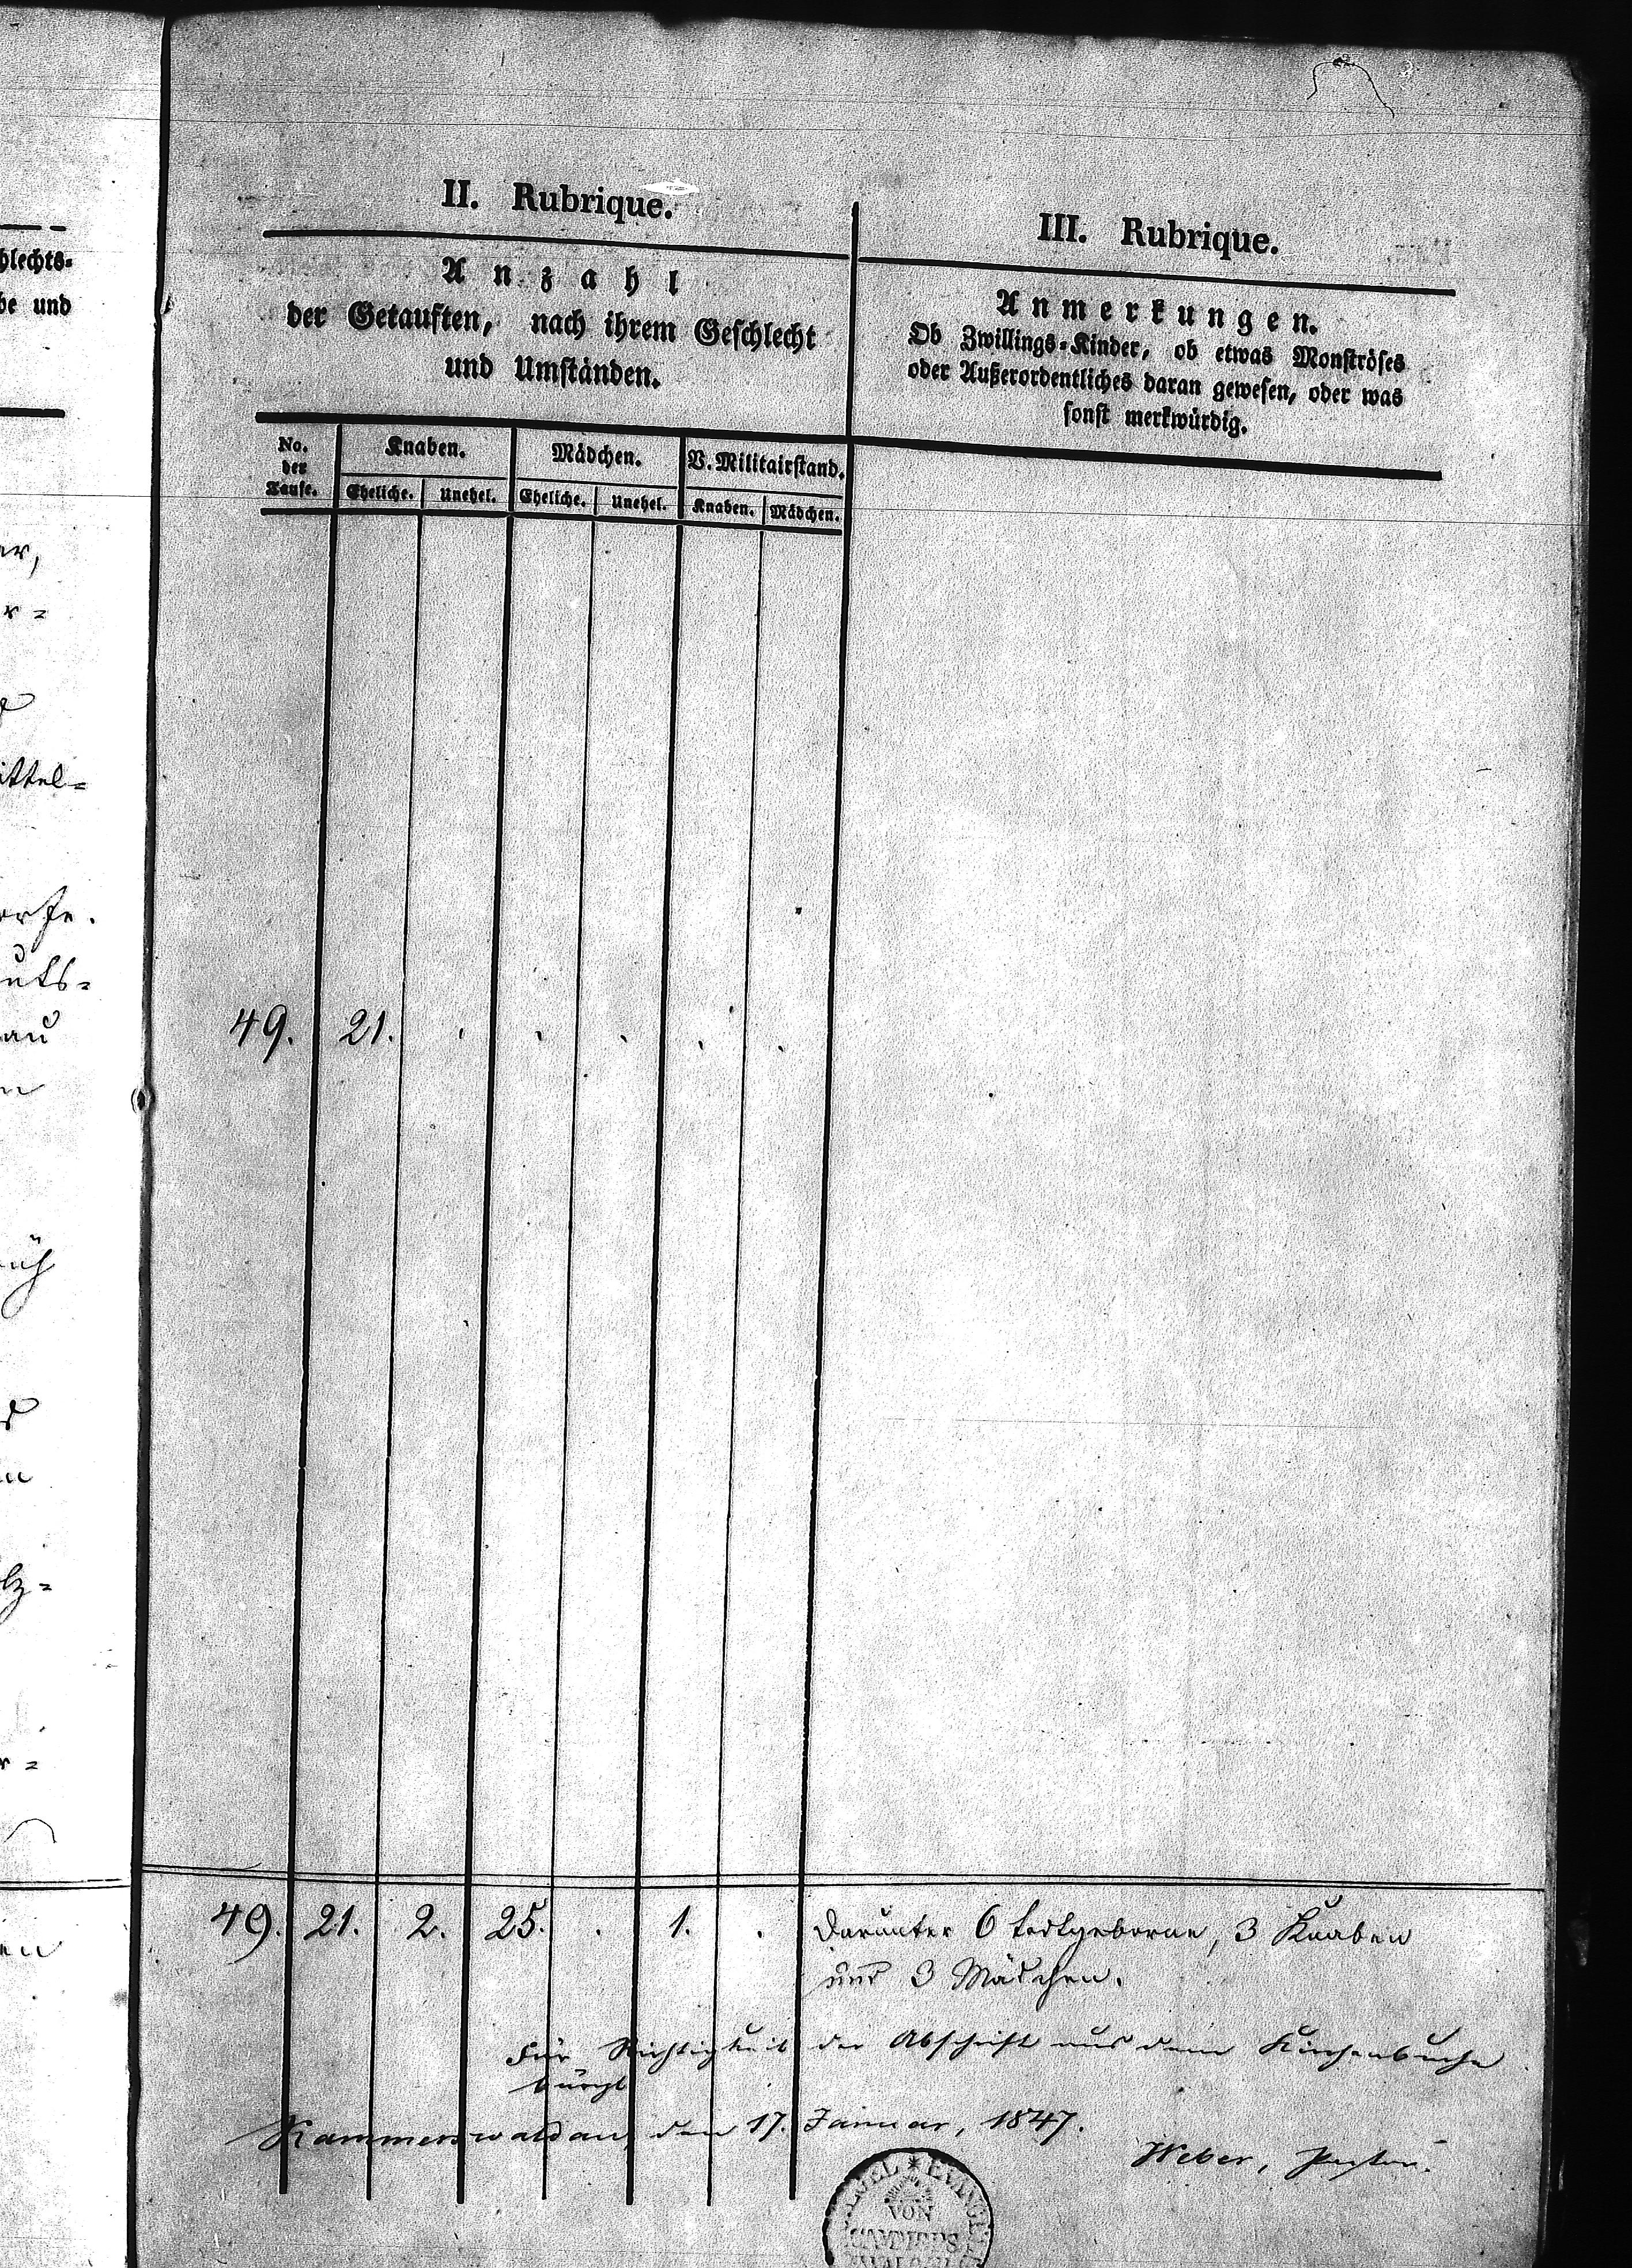 hlechts=
be und
er,
r=
ittel=
orfe.
uts=
au
lz=
r=
II. Rubrique.
Anzahl
der Getauften, nach ihrem Geschlecht
und Umständen.
No.
der
Taufe.
Knaben.
Mädchen.
V. Militairstand.
Eheliche.
Unehel.
Eheliche.
Unehel.
Knaben.
Mädchen.
III. Rubrique.
Anmerkungen.
Ob Zwillings=Kinder, ob etwas Monströses
oder Außerordentliches daran gewesen, oder was
sonst merkwürdig.
49. 21. . . . . .
49. 21. 2. 25. . 1. . Darunter 6 todtgeborne, 3 Knaben
und 3 Mädchen.
Für Richtigkeit der Abschrift aus dem Kirchenbuche
bürgt
Kammerswaldau, den 17. Januar, 1847.
Weber, Pastor.
VON